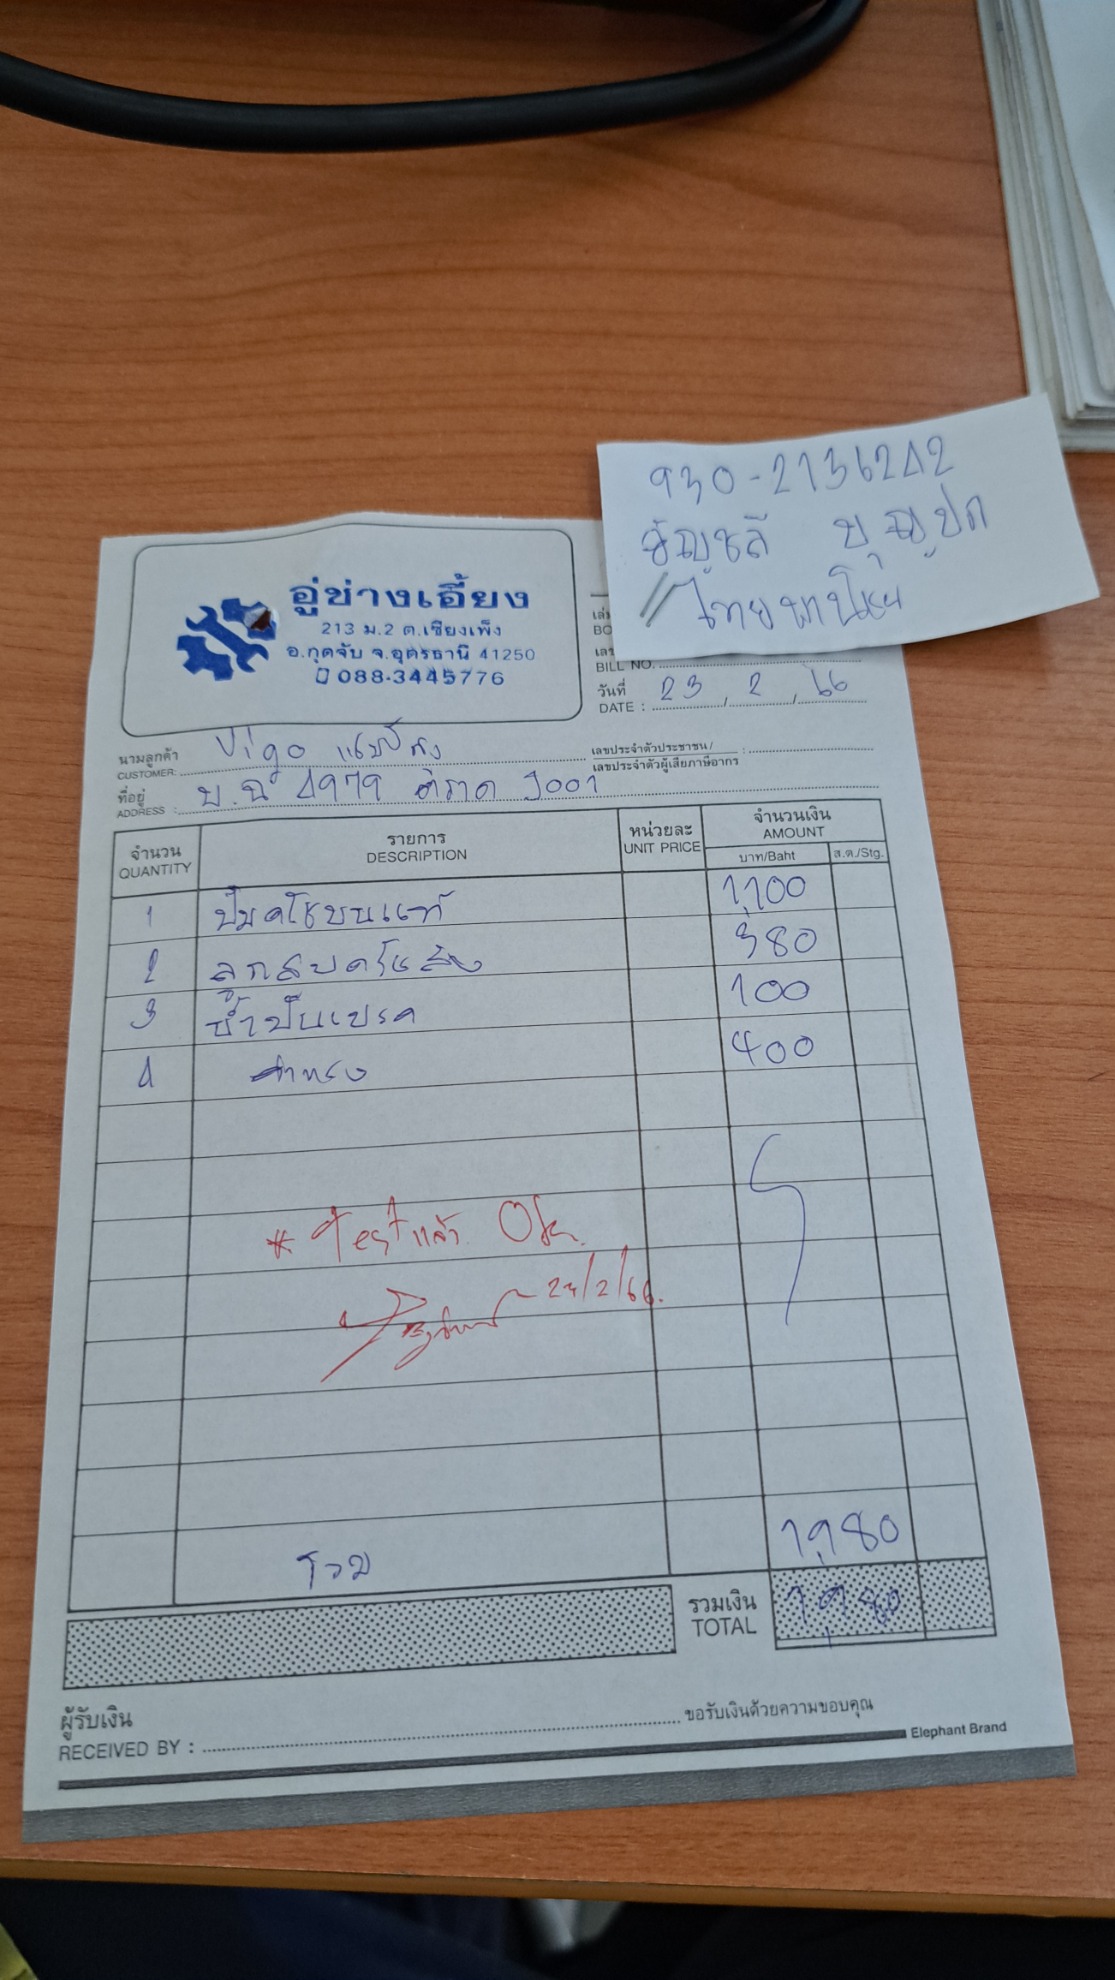 930-2136242
ธัญชลี บุญปก
// ไทยพาณิชย์
อู่ช่างเอี้ยง
213 ม.2 ต.เชียงเพ็ง
อ.กุดจับ จ.อุดรธานี 41250
088-3445776
เล่ม
BO
เลข
BILL NO.
วันที่ 23 / 2 / 66
DATE :
นามลูกค้า Vigo แชมป์
CUSTOMER:
เลขประจำตัวประชาชน/
เลขประจำตัวผู้เสียภาษีอากร :
ที่อยู่ บ.ฉ 4979 ตีราด 1001
ADDRESS :
จำนวน รายการ หน่วยละ จำนวนเงิน
QUANTITY DESCRIPTION UNIT PRICE AMOUNT
บาท/Baht ส.ต./Stg.
1 ปั๊มคลัชบนแท้ 1,100
2 ลูกสูบครัชล่าง 380
3 น้ำมันเบรค 100
4 ค่าแรง 400
* Test แล้ว Ok.
24/2/66.
รวม 1,980
รวมเงิน 1,980
TOTAL
ผู้รับเงิน
RECEIVED BY : ขอรับเงินด้วยความขอบคุณ
Elephant Brand